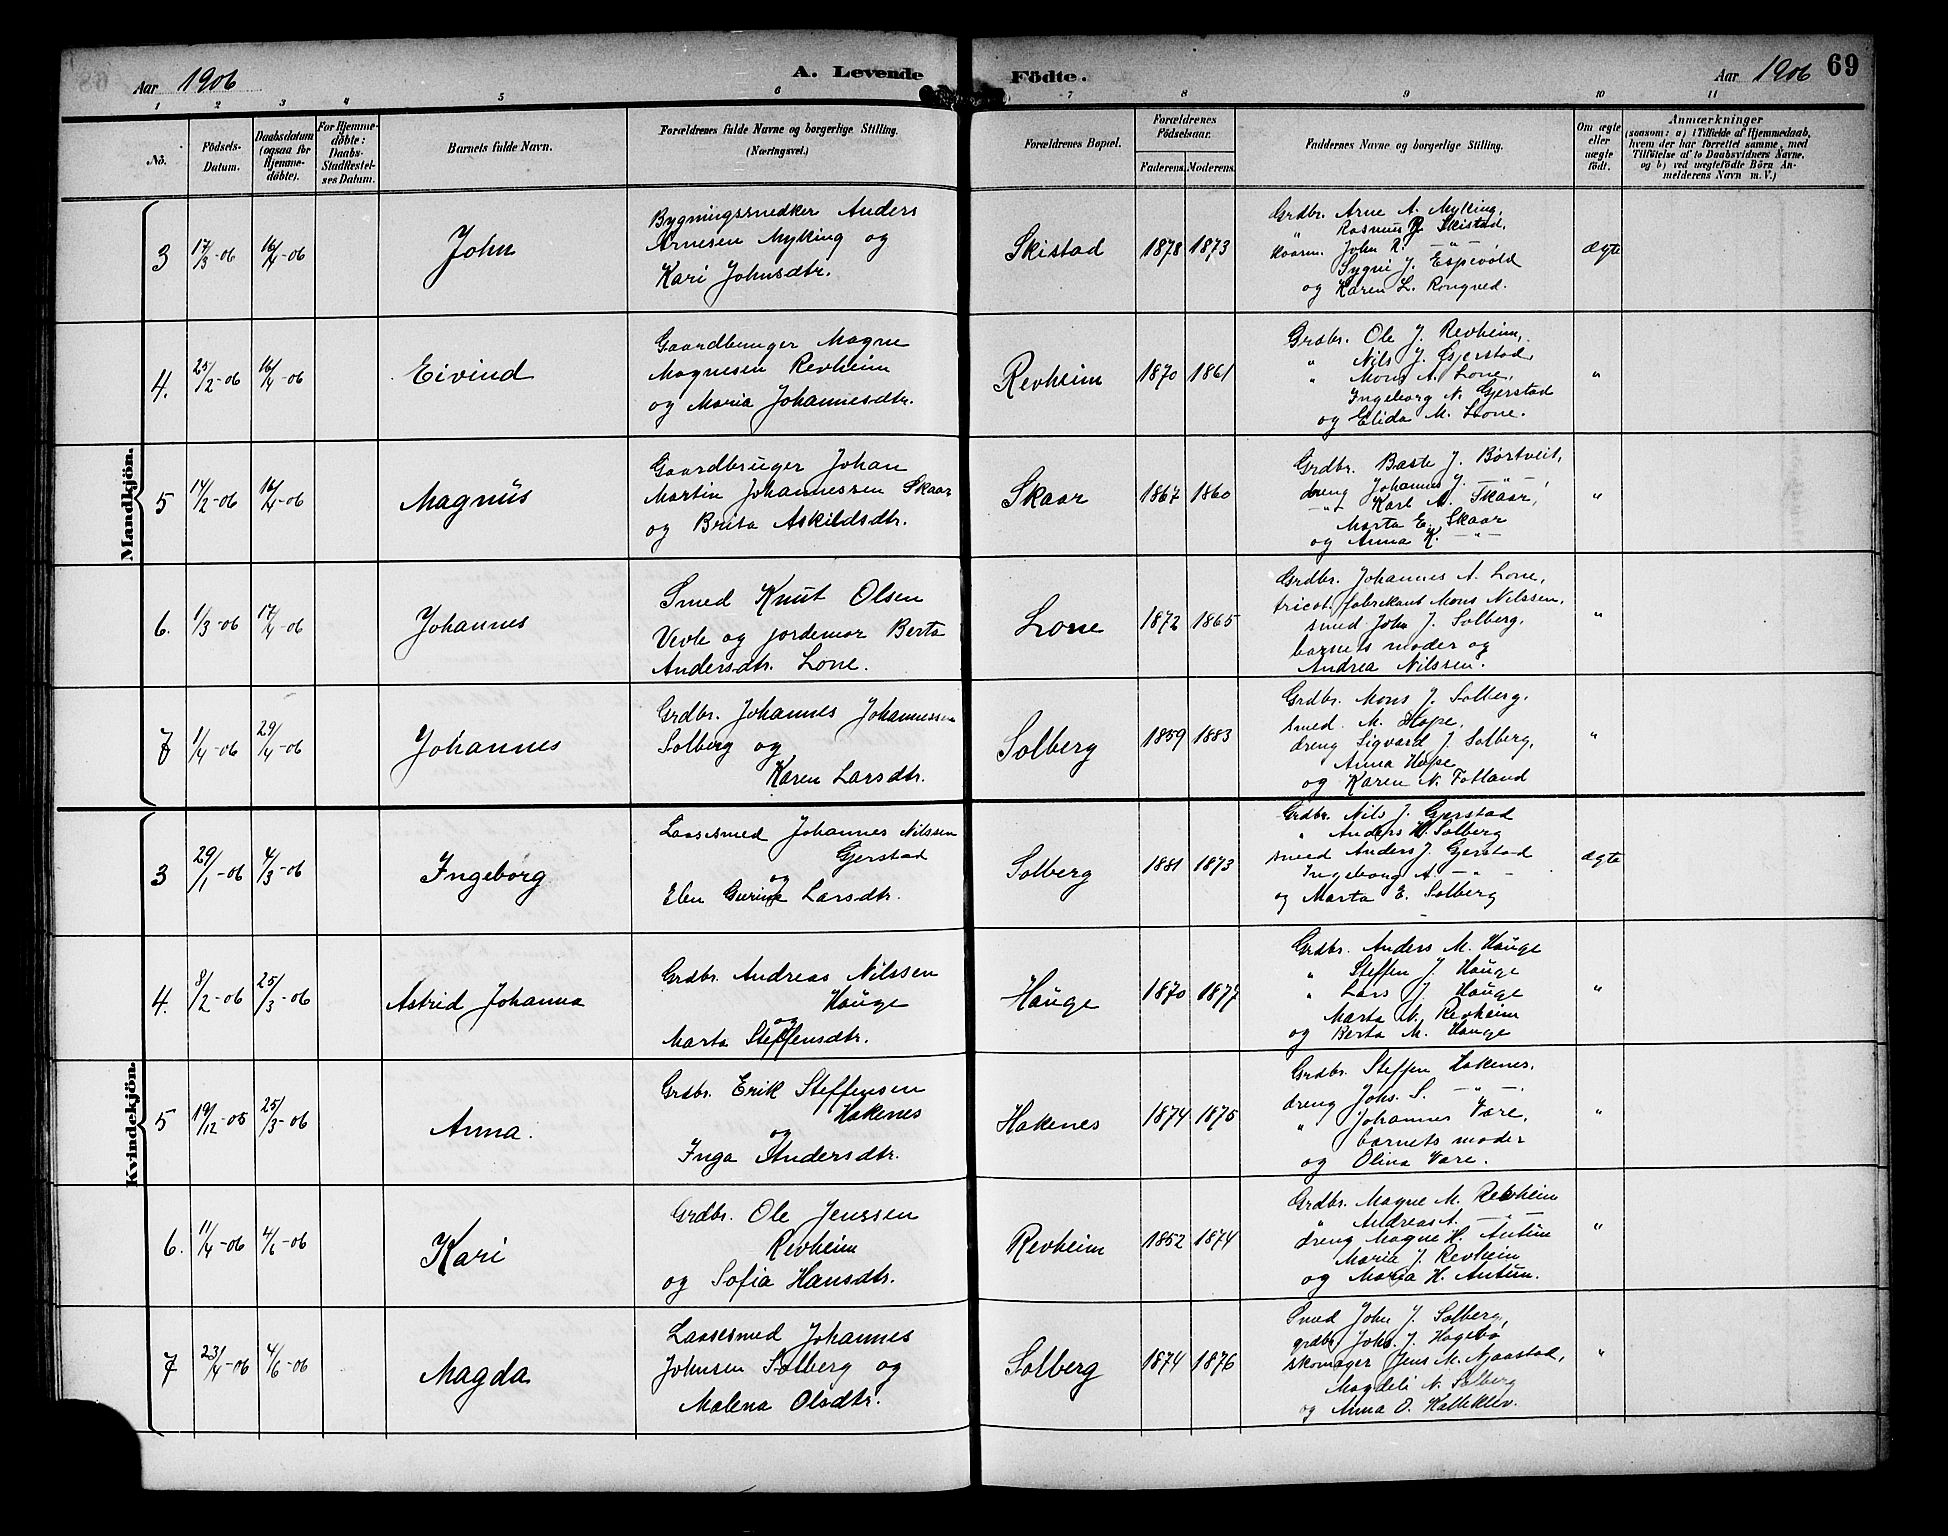 Aar 1906
A. Levende Födte.
Aar 1906
69
1 2 3 4 5 6 7 8 9 10 11
No.
Födsels-Datum.
Daabsdatum (ogsaa for Hjemme-döbte).
For Hjemme-döbte: Daabs-Stadfæstel-ses Datum.
Barnets fulde Navn.
Forældrenes fulde Navne og borgerlige Stilling. (Næringsvei.)
Forældrenes Bopæl.
Forældrenes Födselsaar.
Faderens. Moderens.
Faddernes Navne og borgerlige Stilling.
Om ægte eller uægte födt.
Anmærkninger
(saasom: a) i Tilfælde af Hjemmedaab, hvem der har forrettet samme, med Tilföielse af to Daabsvidners Navne, og b) ved uægtefödte Börn An-melderens Navn m. V.)
Mandkjön.
3 17/3-06 16/4-06 John
Bygningssnedker Anders
Arnesen Myking og
Kari Johnsdtr.
Skistad 1878 1873
Grdbr. Arne A. Myking,
" Rasmus R. Skistad,
John R. — " —
Sygni J. Espevold
og Karen L. Rongved.
ægte
4. 25/2-06 16/4-06 Eivind
Gaardbruger Magne
Magnesen Revheim
og Maria Johannesdtr.
Revheim 1870 1861
Grdbr. Ole J. Revheim,
" Nils J. Gjerstad,
" Mons A. Lone,
Ingeborg N. Gjerstad
og Elida M. Lone.
"
5 14/2-06 16/4-06 Magnus
Gaardbruger Johan
Martin Johannessen Skaar
og Brita Askildsdtr.
Skaar 1867 1860
Grdbr. Baste J. Børtveit,
dreng Johannes J. — " —
— " — Karl A. Skaar,
Marta E. Skaar
og Anna K. — " —
"
6. 1/3-06 17/4-06 Johannes
Smed Knut Olsen
Vevle og jordemor Berta
Andersdtr. Lone.
Lone 1872 1865
Grdbr. Johannes A. Lone,
tricot. fabrikant Mons Nilssen,
smed John J. Solberg,
barnets moder og
Andrea Nilssen.
"
7 1/4-06 29/4-06 Johannes
Grdbr. Johannes Johannessen
Solberg og
Karen Larsdtr.
Solberg 1859 1883
Grdbr. Mons J. Solberg,
smed. M. Hope,
dreng Sigvard J. Solberg,
Anna Hope
og Karen N. Fotland
"
Kvindekjön.
3 29/1-06 4/3-06 Ingeborg
Laasesmed Johannes Nilssen
Gjerstad
og
Elen Gurine Larsdtr.
Solberg 1881 1873
Grdbr. Nils J. Gjerstad
" Anders H. Solberg
smed Anders J. Gjerstad
Ingeborg A. — " —
og Marta E. Solberg
ægte
4. 8/2-06 25/3-06 Astrid Johanna
Grdbr. Andreas Nilssen
Hauge
og
Marta Steffensdtr.
Hauge 1870 1877
Grdbr. Anders M. Hauge
" Steffen J. Hauge
" Lars J. Hauge
Marta N. Revheim
og Berta M. Hauge
"
5 19/12-05 25/3-06 Anna.
Grdbr. Erik Steffensen
Hakenes
og
Inga Andersdtr.
Hakenes 1874 1875
Grdbr. Steffen Hakenes,
dreng Johs. S. — " —
" Johannes Vare,
barnets moder
og Olina Vare.
"
6. 11/4-06 4/6-06 Kari
Grdbr. Ole Jenssen
Revheim
og Sofia Hansdtr.
Revheim 1852 1874
Grdbr. Magne M. Revheim
" Andreas A. — " —
dreng Magne H. Antun
Maria J. Revheim
og Maria H. Antun.
"
7 23/4-06 4/6-06 Magda
Laasesmed Johannes
Johnsen Solberg og
Malena Olsdtr.
Solberg 1874 1876
Smed John J. Solberg,
grdbr. Johs. J. Hagebø
skomager Jens M. Njaastad,
Magdeli N. Solberg
og Anna O. Kalleklev.
"